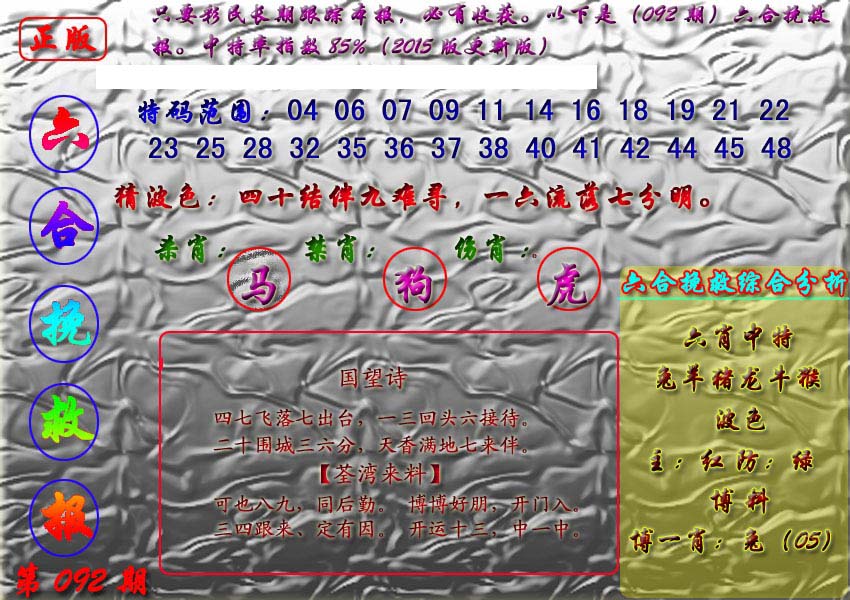 正版
只要彩民长期跟踪本报，必有收获。以下是（092期）六合挽救
报。中特率指数85%（2015版更新版）
六合挽救报
第092期
特码范围：04 06 07 09 11 14 16 18 19 21 22
23 25 28 32 35 36 37 38 40 41 42 44 45 48
猜波色：四十结伴九难寻，一六流落七分明。
杀肖：马 禁肖：狗 伤肖：虎
国望诗
四七飞落七出台，一三回头六接待。
二十围城三六分，天香满地七来伴。
【荃湾来料】
可也八九，同后勤。 博博好朋，开门入。
三四跟来、定有因。 开运十三，中一中。
六合挽救综合分析
六肖中特
兔羊猪龙牛猴
波色
主：红防：绿
博料
博一肖：兔（05）